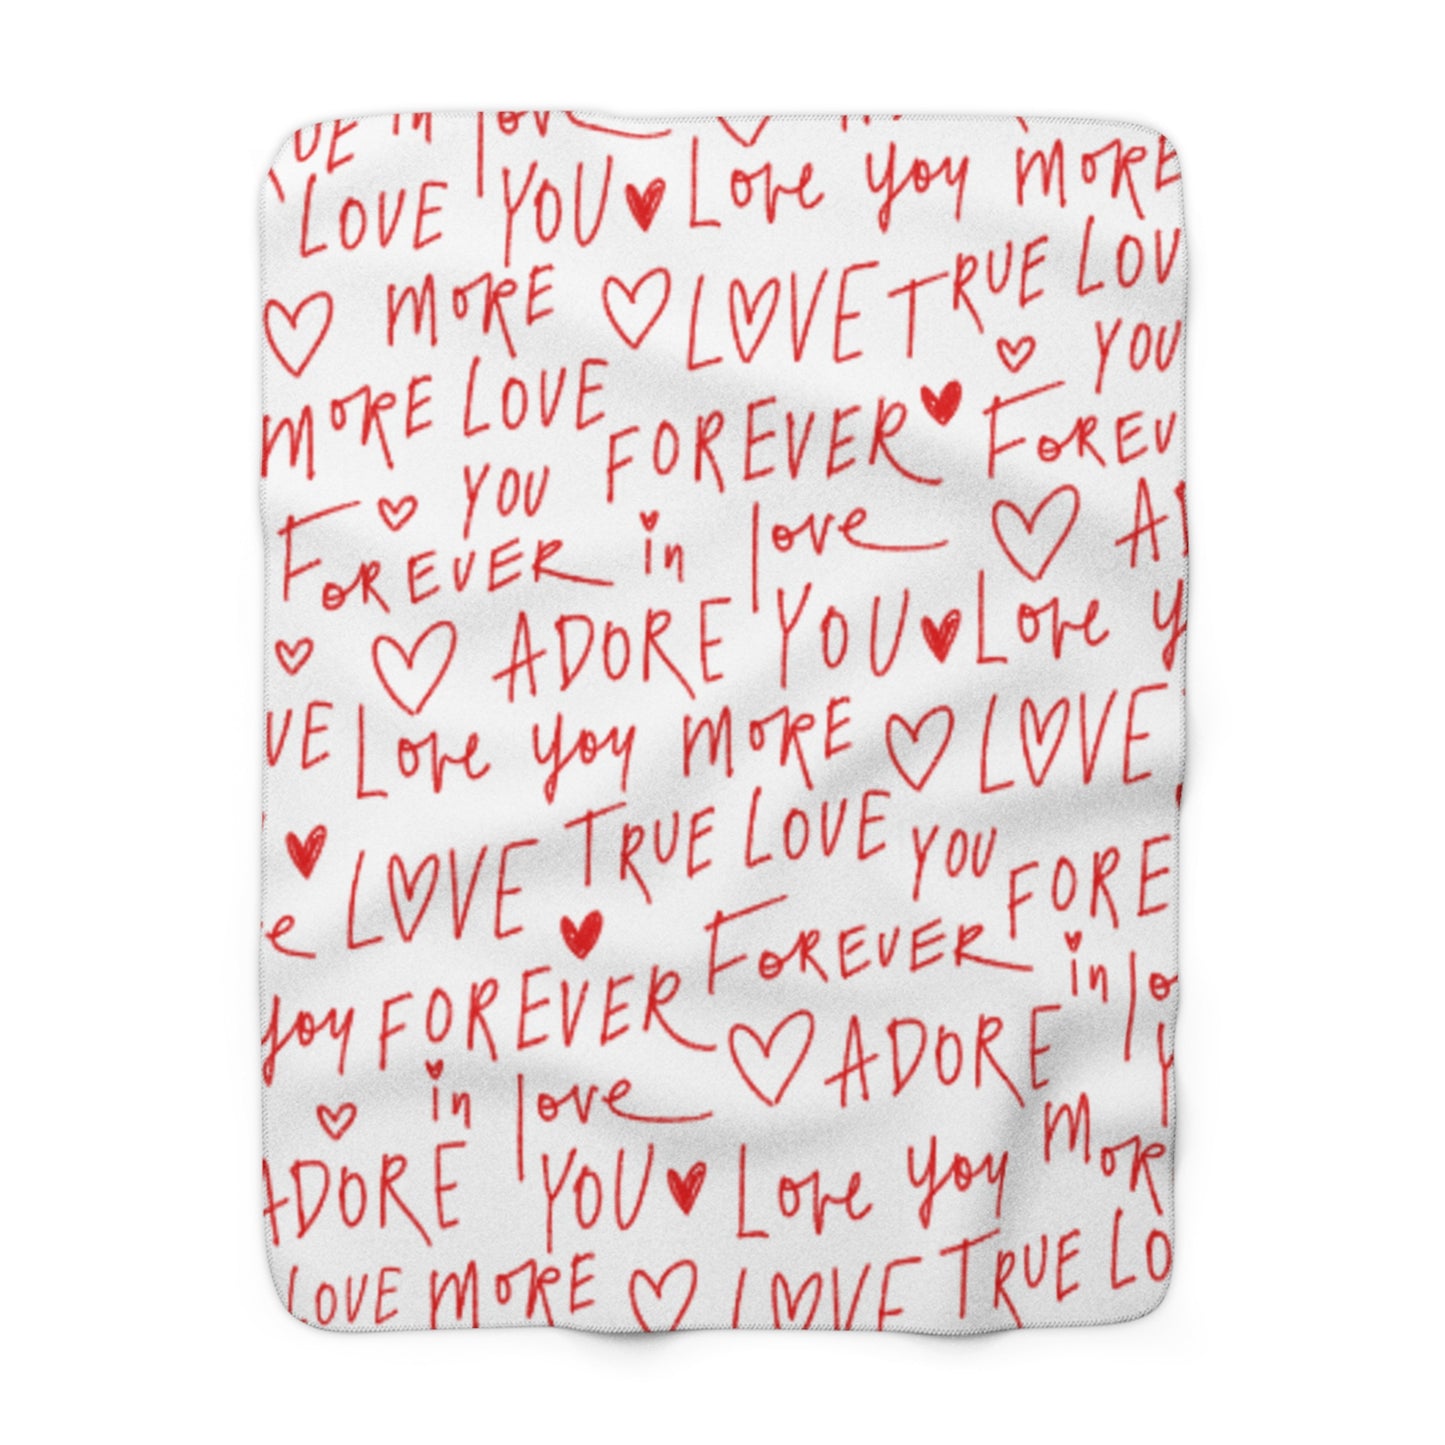 UE in love
LOVE YOU Love you MORE
MORE LOVE TRUE LOV
YOU
MORE LOVE FOREVER FOREV
YOU
FOREVER in love A
ADORE YOU Love y
VE Love you MORE LOVE
LOVE TRUE LOVE YOU FORE
e
FOREVER in lo
you FOREVER ADORE Y
in love MOR
ADORE YOU Love you
LOVE MORE LOVE TRUE LO